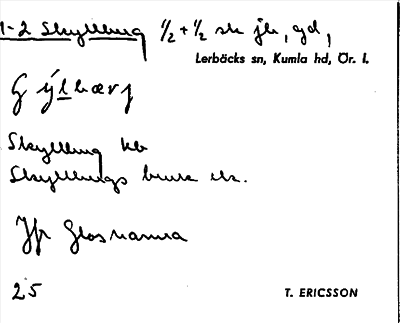 1-2 Skyllberg ½ + ½ sk jb, gd,
Lerbäcks sn, Kumla hd, Ör. l.
Skyllberg kb
Skyllbergs bruk
Jfr Glosnamna
25
T. ERICSSON